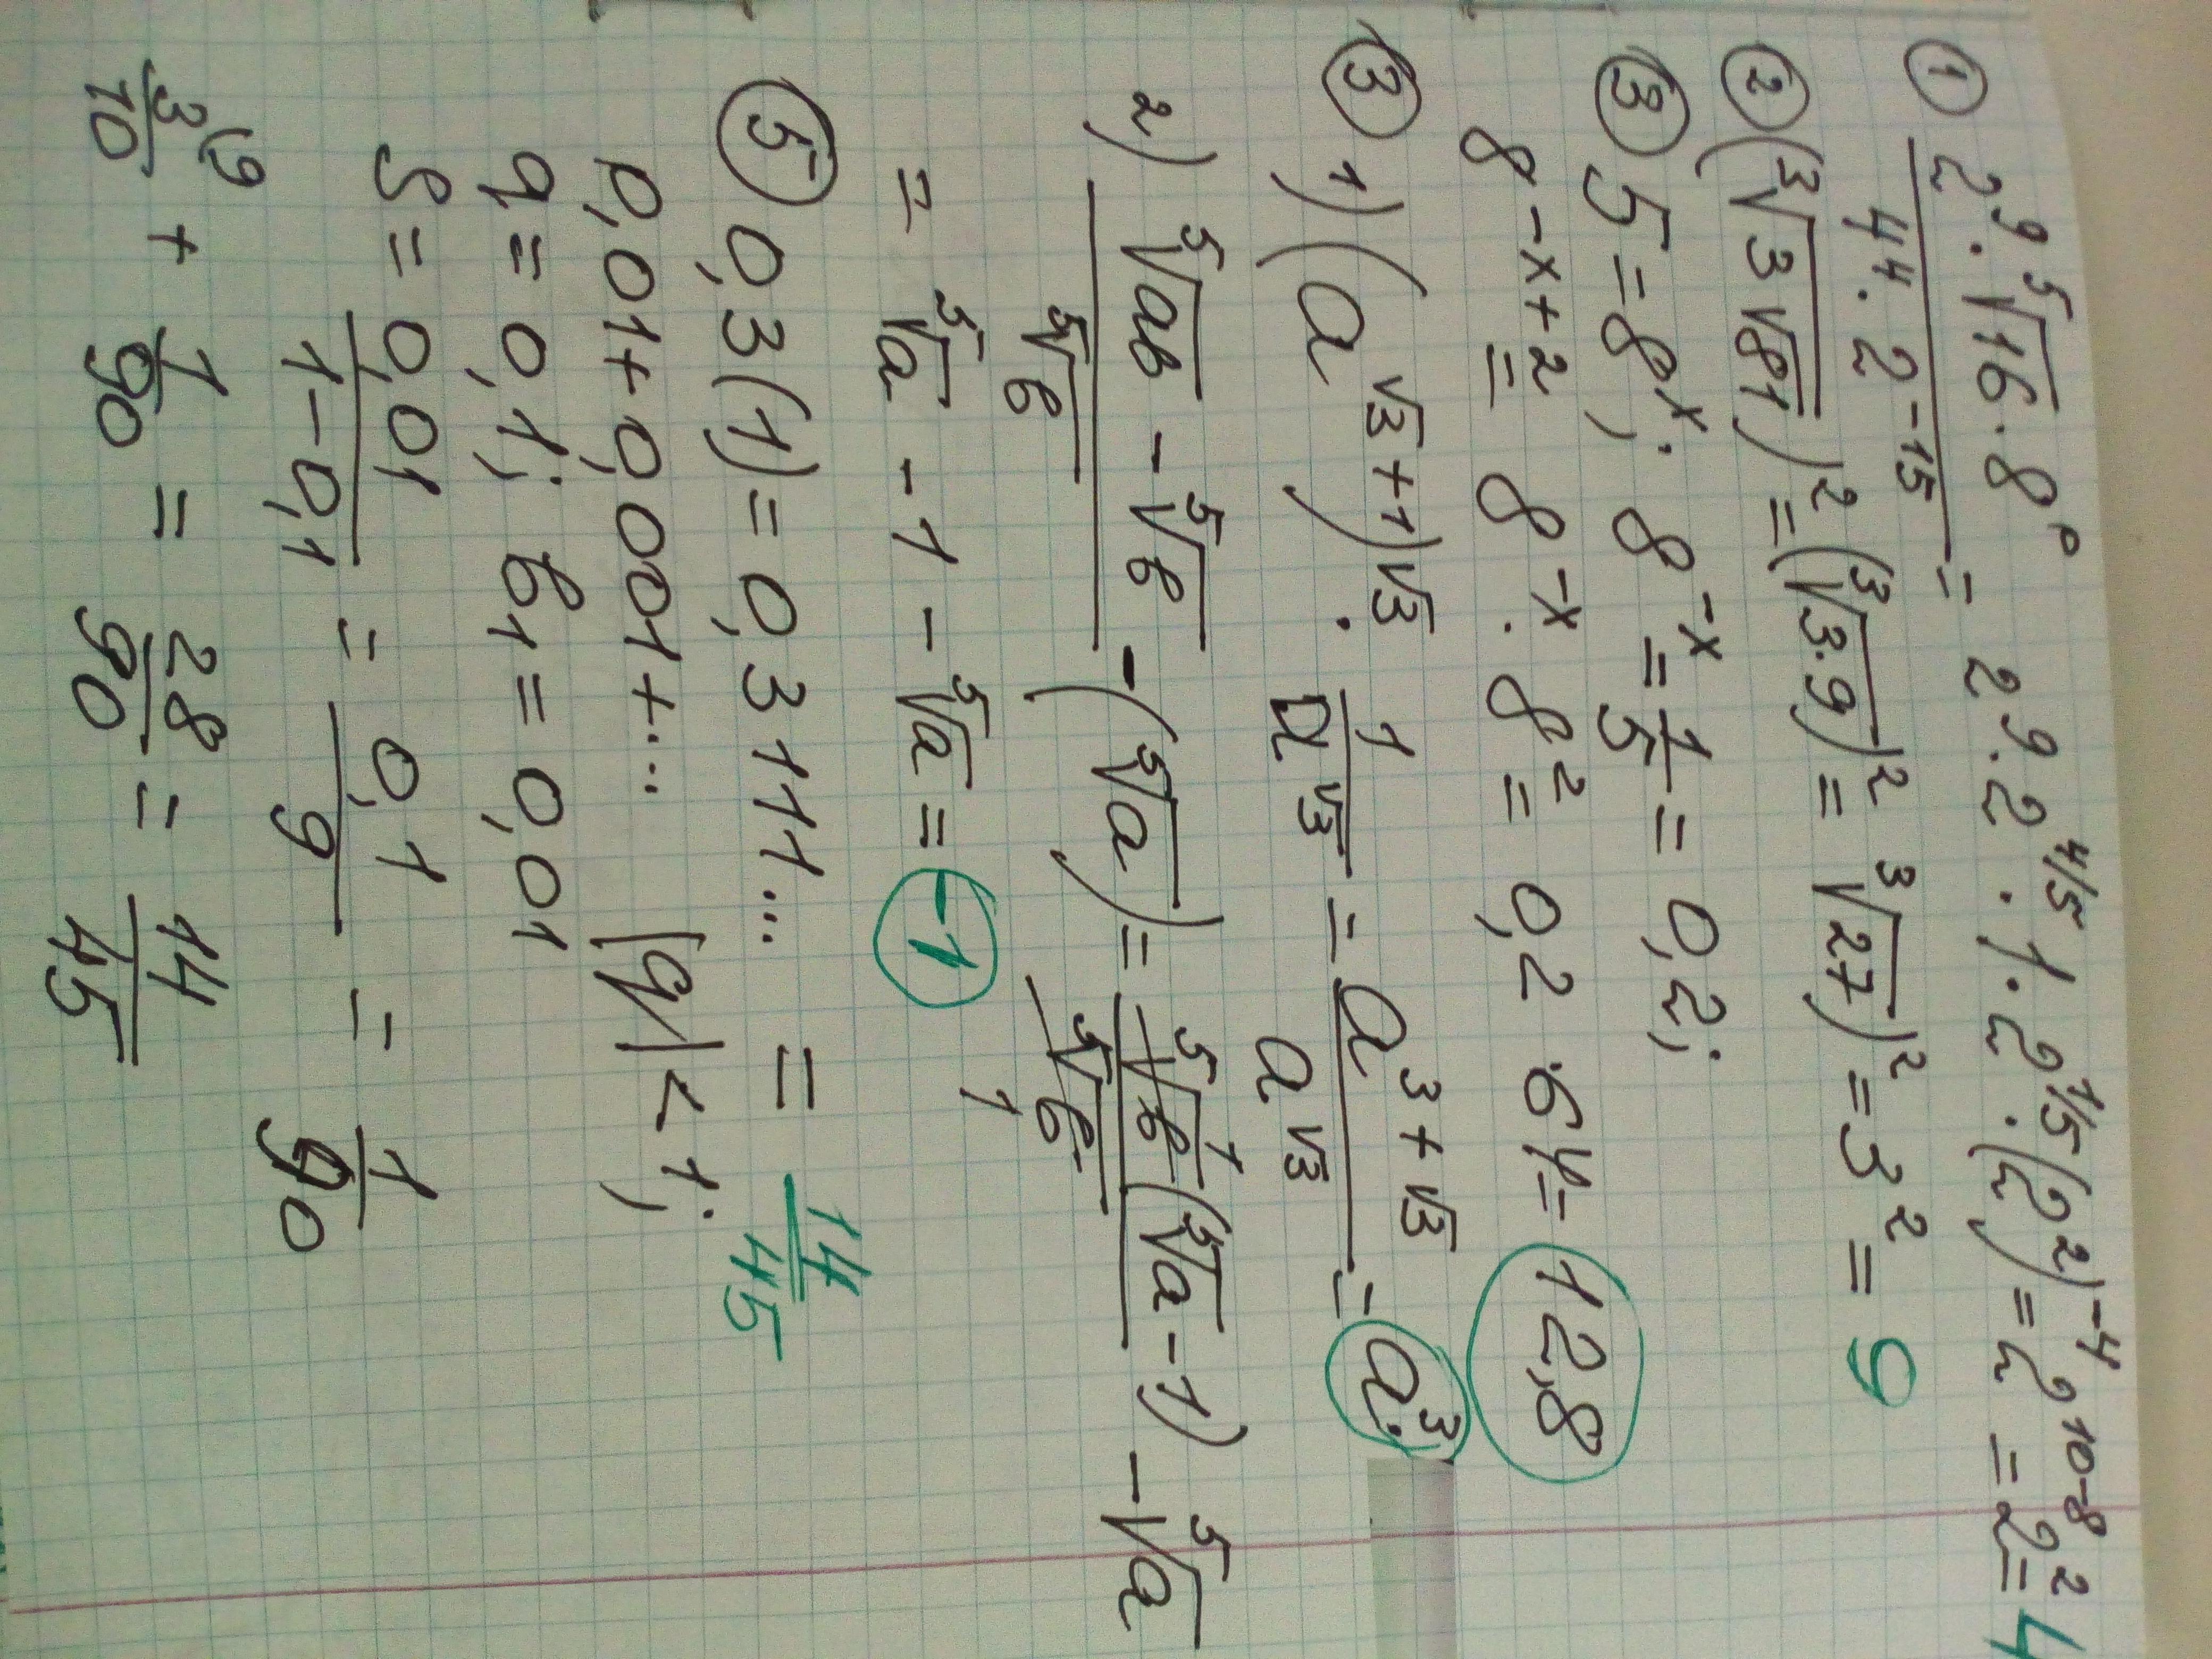 ① (2⁹ · ⁵√16 · 8⁰)/(4⁴ · 2^(-1/5)) = 2⁹ · 2^(4/5) · 1 · 2^(1/5) · (2²)⁻⁴ = 2^(10-8) = 2² = 4
② (³√(3√81))² = (³√(3·9))² = ³√27)² = 3² = 9
③ 5 = 8ˣ; 8⁻ˣ = 1/5 = 0,2;
8^(-x+2) = 8⁻ˣ · 8² = 0,2 · 64 = 12,8
③ 1) (a^(√3+1))^√3 · 1/a^√3 = a^(3+√3)/a^√3 = a³;
2) (⁵√ав - ⁵√в)/⁵√в - (⁵√a) = ⁵√в ¹(⁵√a - 1)/⁵√в 1 - ⁵√a
= ⁵√a - 1 - ⁵√a = -1
⑤ 0,3(1) = 0,3111... = 14/45
0,01 + 0,001 + .... |q| < 1;
q = 0,1; в₁ = 0,01
S = 0,01/(1-0,1) = 0,1/9 = 1/90
3⁽⁹/10 + 1/90 = 28/90 = 14/45